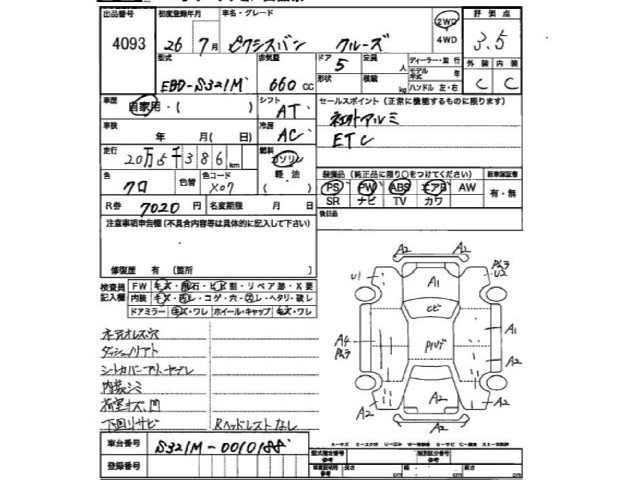 出品番号 初度登録年月 車名・グレード 2WD 評価点
4093 26年 7月 ピクシスバン クルーズ 4WD 3.5
型式 排気量 ドア 定員 ディーラー・並行 外装 内装
EBD-S321M 660cc 5 人 モデル年式
形状 積載 kg ハンドル 左・右 C C
車歴 自家用・( ) シフト AT セールスポイント(正常に機能するものに限ります)
車検 年 月( 日) 冷房 AC 社外アルミ
ETC
走行 20万5千386km 燃料 ガソリン 軽油 ( )
装備品(純正品に限り○をつけてください) 新車保証書
色 クロ 色替 色コード X07 PS PW ABS エアB AW 有・無
SR ナビ TV カワ
R券 7020円 名変期限 月 日 後日品
注意事項申告欄(不具合内容等は具体的に記入して下さい)
修復歴 有〔箇所 〕
検査員記入欄 FW キズ・飛石・ヒビ割・リペア跡・X要
内装 キズ・汚レ・コゲ・穴・スレ・ヘタリ・破レ
ドアミラー キズ・ワレ ホイール・キャップ キズ・ワレ
ダッシュノリアト
シートカバーアリ・ヤブレ
内装シミ
荷室キズ、凹
下回リサビ Rヘッドレストなし
車台番号 S321M-0010188
登録番号
A2
A2 A2
U1 U2
A1
ヒビ
A4 A1
A2
A2 A2
A2
型式指定番号 参考 類別区分番号 参考
長さ cm 幅 cm 高さ cm